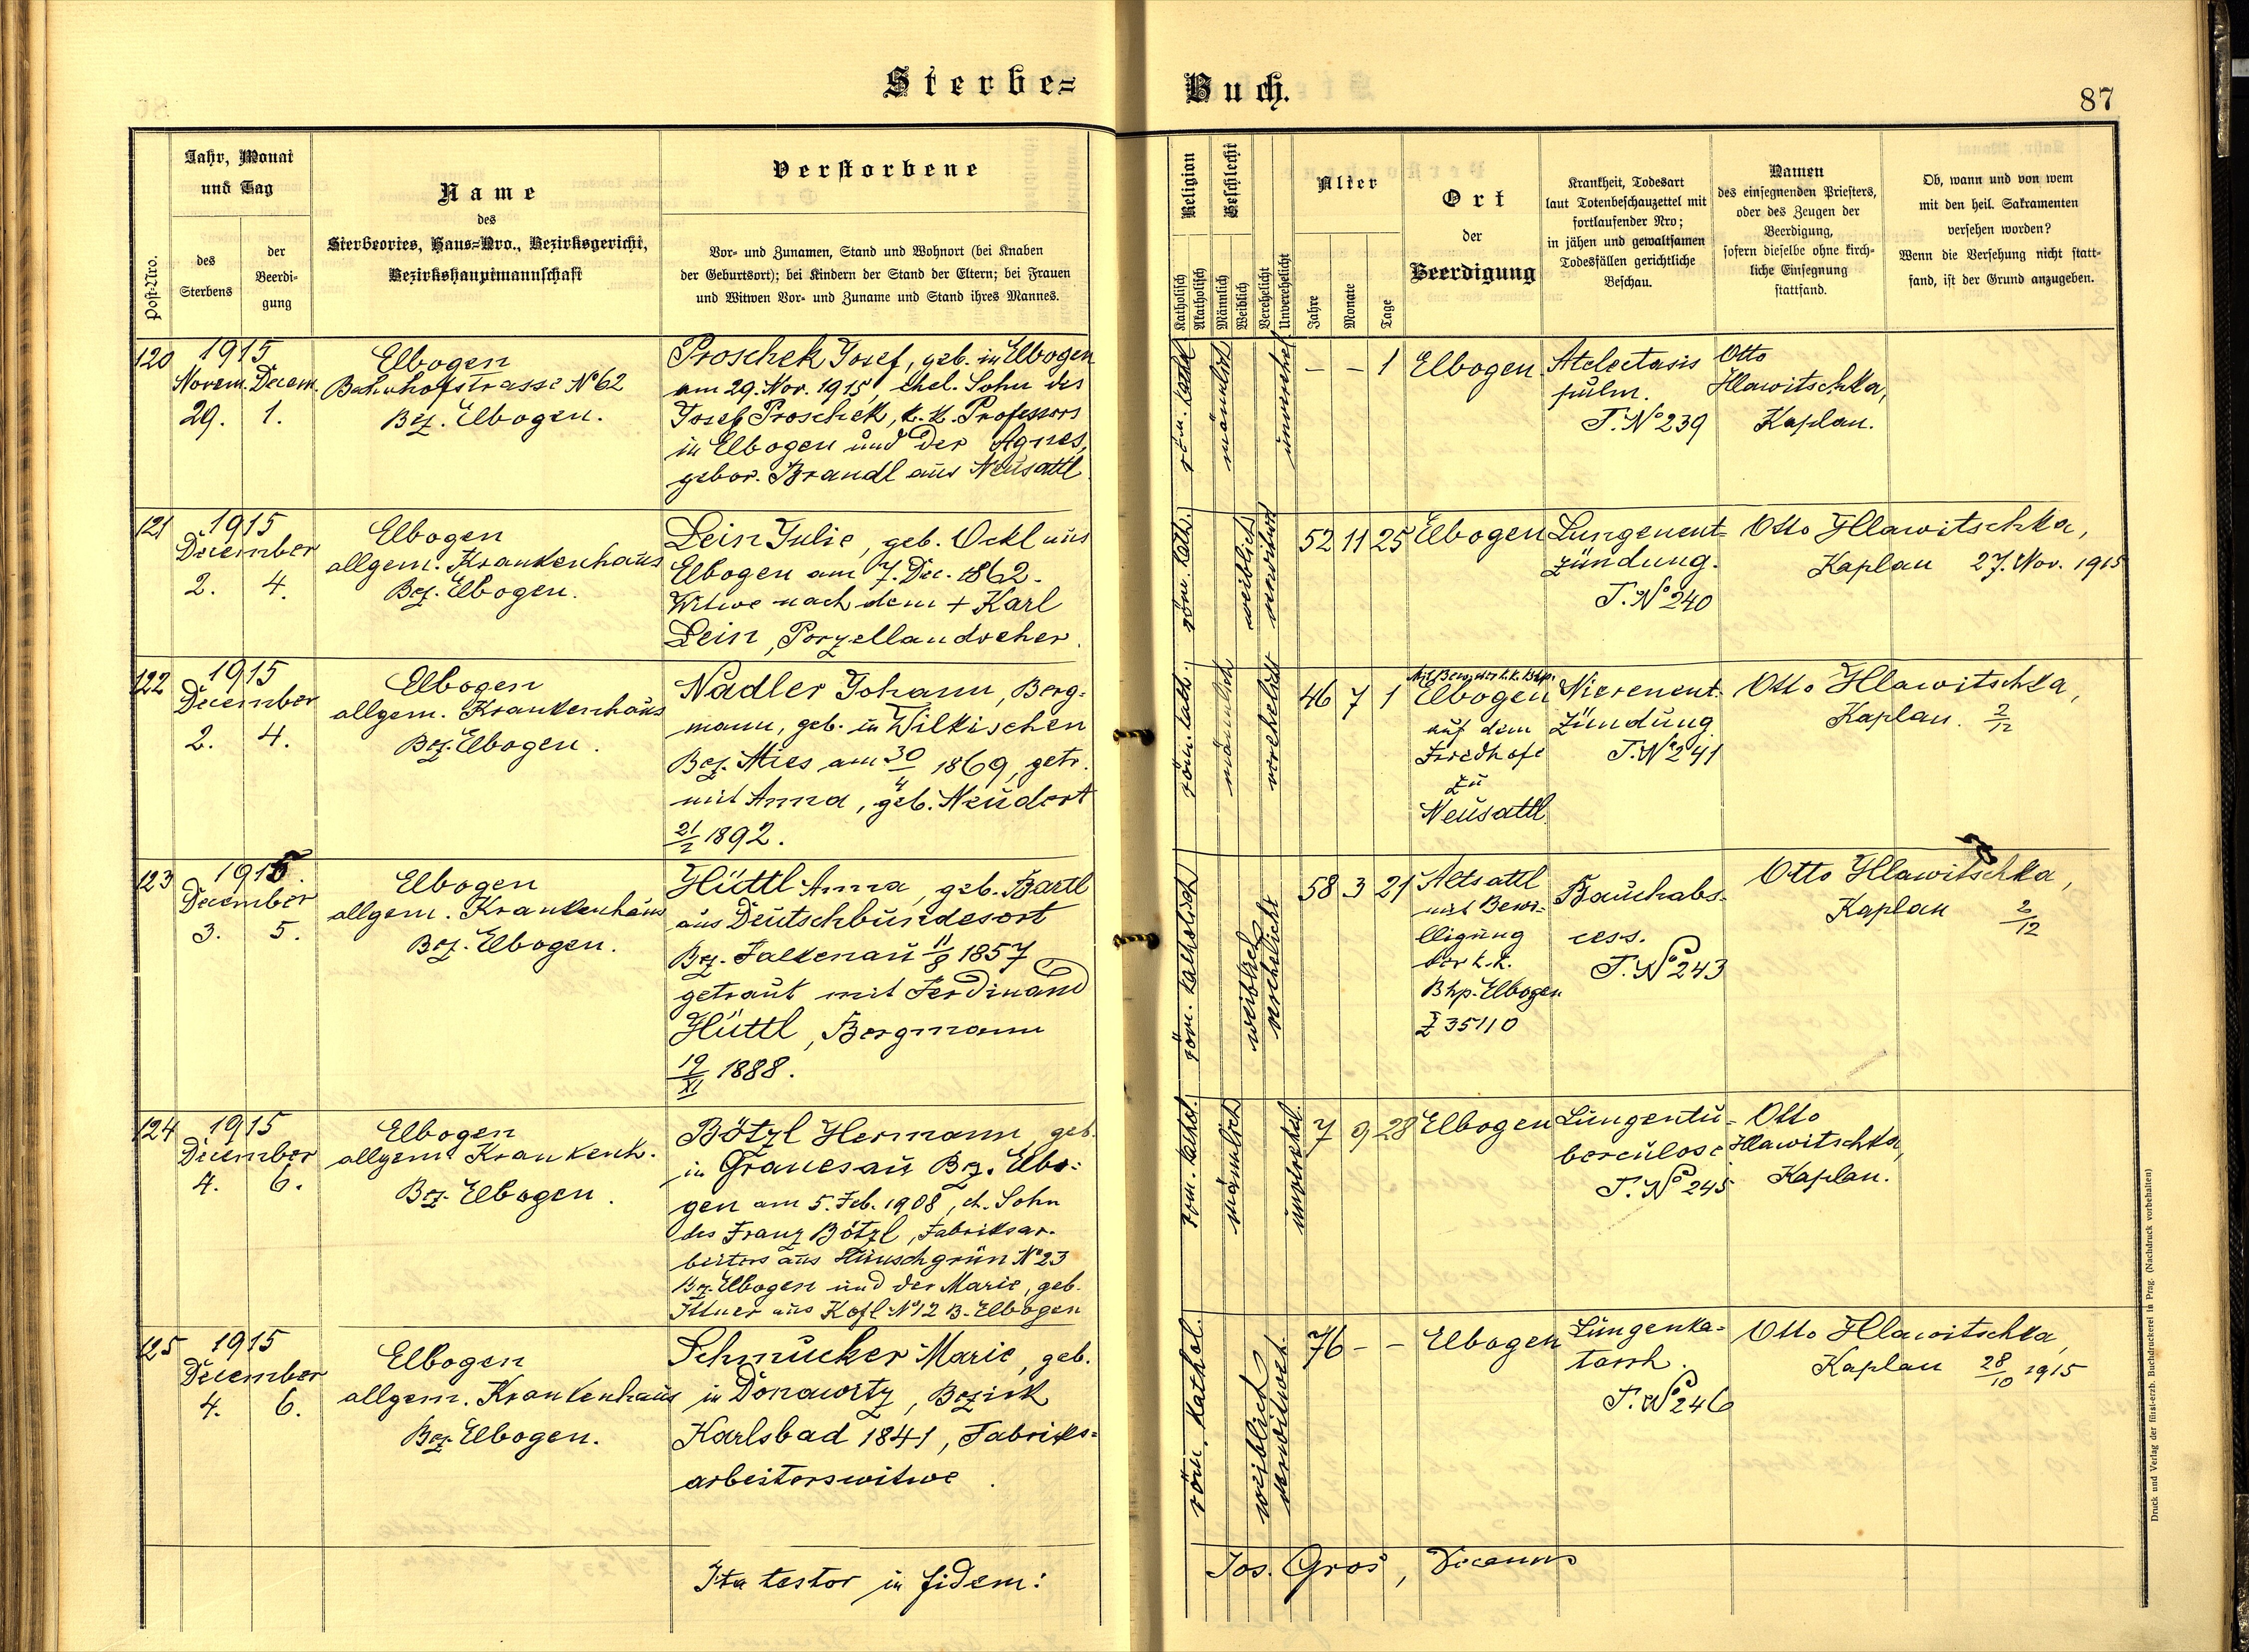 Sterbe=
Buch.
87
Post-Nro.
Jahr, Monat
und Tag
des
Sterbens
der
Beerdi-
gung
Name
des
Sterbeortes, Haus=Nro., Bezirksgericht,
Bezirkshauptmannschaft
Verstorbene
Vor- und Zunamen, Stand und Wohnort (bei Knaben
der Geburtsort); bei Kindern der Stand der Eltern; bei Frauen
und Witwen Vor- und Zuname und Stand ihres Mannes.
Religion
Katholisch
Akatholisch
Geschlecht
Männlich
Weiblich
Verehelicht
Unverehelicht
Alter
Jahre
Monate
Tage
Ort
der
Beerdigung
Krankheit, Todesart
laut Totenbeschauzettel mit
fortlaufender Nro;
in jähen und gewaltsamen
Todesfällen gerichtliche
Beschau.
Namen
des einsegnenden Priesters,
oder des Zeugen der
Beerdigung,
sofern dieselbe ohne kirch-
liche Einsegnung
stattfand.
Ob, wann und von wem
mit den heil. Sakramenten
versehen worden?
Wenn die Versehung nicht statt-
fand, ist der Grund anzugeben.
120
1915
Novem. Decem.
29. 1.
Elbogen
Bahnhofstrasse No 62
Bez. Elbogen.
Proschek Josef, geb. in Elbogen
am 29. Nov. 1915, ehel. Sohn des
Josef Proschek, k. k. Professors
in Elbogen und der Agnes,
gebor. Brandl aus Neusattl
röm. kath
männlich
unverehel.
– – 1
Elbogen
Atelectasis
pulm.
T. No 239
Otto
Hlawitschka,
Kaplan.
121
1915
December
2. 4.
Elbogen
allgem. Krankenhaus
Bez. Elbogen.
Lein Julie, geb. Ockl aus
Elbogen am 7. Dec. 1862.
Witwe nach dem + Karl
Lein, Porzellandreher.
röm. kath.
weiblich
verwitwet
52 11 25
Elbogen
Lungenent=
zündung.
T. No 240
Otto Hlawitschka,
Kaplan 27. Nov. 1915
122
1915
December
2. 4.
Elbogen
allgem. Krankenhaus
Bez. Elbogen.
Nadler Johann, Berg=
mann, geb. in Wilkischen
Bez. Mies am 30/4 1869, getr.
mit Anna, geb. Neudert
21/2 1892.
röm. kath.
männlich
verehelicht
46 7 1
Mit Bew. der k. k. Bhp.
Elbogen
auf dem
Friedhofe
zu
Neusattl.
Nierenent.
zündung
T. No 241
Otto Hlawitschka,
Kaplan. 2/12
123
1915.
December
3. 5.
Elbogen
allgem. Krankenhaus
Bez. Elbogen.
Hüttl Anna, geb. Bartl
aus Deutschbundesort
Bez. Falkenau 11/8 1857
getraut mit Ferdinand
Hüttl, Bergmann
19/XI 1888.
röm. katholisch
weiblich
verehelicht
58 3 21
Altsattl
mit Bewi=
lligung
der k. k.
Bhp. Elbogen
Z 35110
Bauchabs-
cess.
T. No 243
Otto Hlawitschka,
Kaplan 2/12
124
1915
December
4. 6.
Elbogen
allgem. Krankenh.
Bez. Elbogen.
Bötzl Hermann, geb.
in Granesau Bez. Elbo=
gen am 5. Feb. 1908, eh. Sohn
des Franz Bötzl, Fabriksar.
beiters aus No 23
Bez. Elbogen und der Marie, geb.
Illner aus Kofl No 12 B. Elbogen
röm. kathol.
männlich
unverehel.
7 9 28
Elbogen
Lungentu-
berculose
T. No 245
Otto
Hlawitschka,
Kaplan.
125
1915
December
4. 6.
Elbogen
allgem. Krankenhaus
Bez. Elbogen.
Schmucker Marie, geb.
in Donawitz, Bezirk
Karlsbad 1841, Fabriks=
arbeiterswitwe.
röm. kathol.
weiblich
verwitwet.
76 – –
Elbogen
Lungenka-
tarrh.
T. No 246
Otto Hlawitschka,
Kaplan 28/10 1915
Ita testor in fidem:
Jos. Gros, Decanus
Druck und Verlag der fürst-erzb. Buchdruckerei in Prag. (Nachdruck vorbehalten)